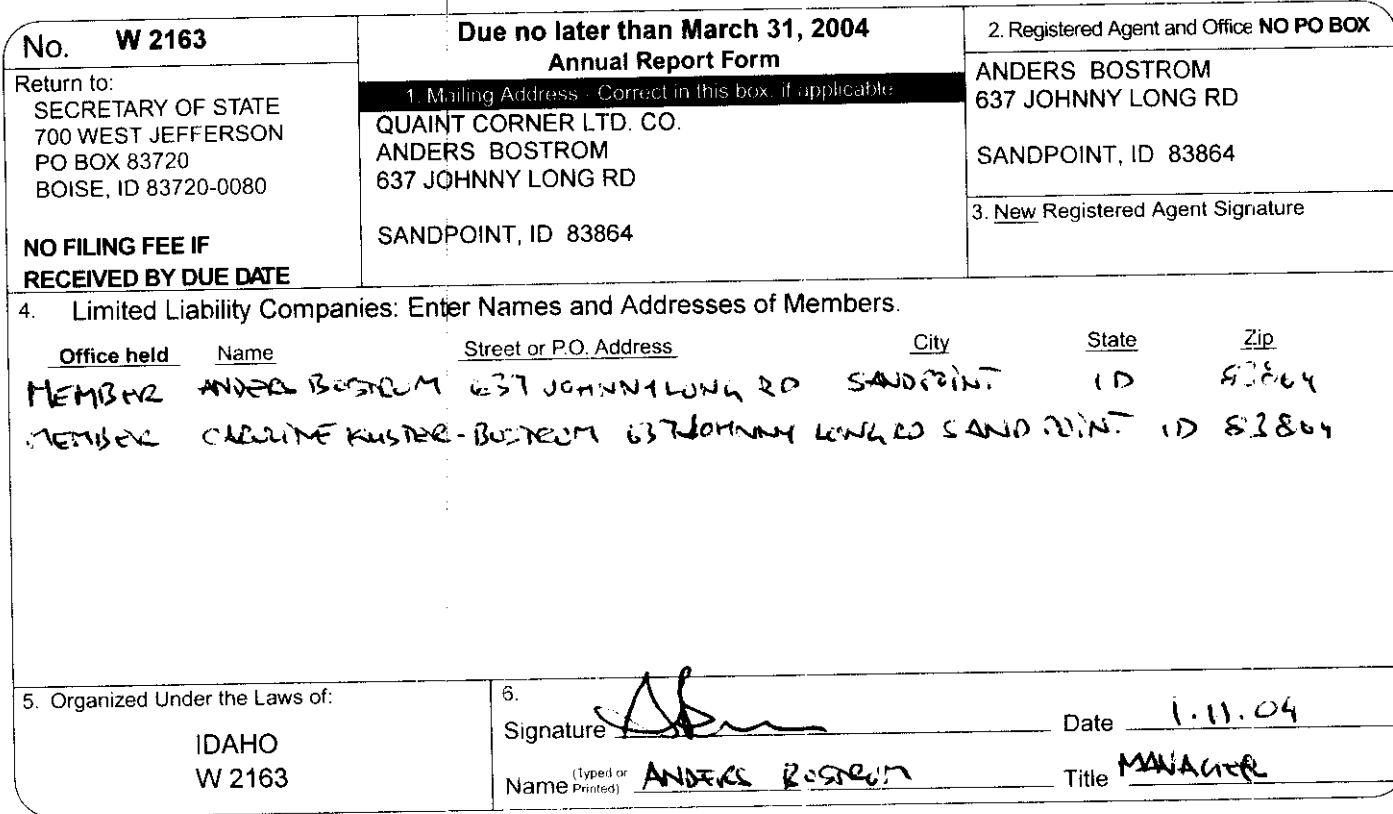 No. W 2163
Return to:
SECRETARY OF STATE
700 WEST JEFFERSON
PO BOX 83720
BOISE, ID 83720-0080
NO FILING FEE IF
RECEIVED BY DUE DATE
Due no later than March 31, 2004
Annual Report Form
1. Mailing Address - Correct in this box, if applicable
QUAINT CORNER LTD. CO.
ANDERS BOSTROM
637 JOHNNY LONG RD
SANDPOINT, ID 83864
2. Registered Agent and Office NO PO BOX
ANDERS BOSTROM
637 JOHNNY LONG RD
SANDPOINT, ID 83864
3. New Registered Agent Signature
4. Limited Liability Companies: Enter Names and Addresses of Members.
Office held Name Street or P.O. Address City State Zip
MEMBER ANDERS BOSTROM 637 JOHNNY LONG RD SANDPOINT ID 83864
MEMBER CAROLINE KUSTER-BOSTROM 637 JOHNNY LONG RD SANDPOINT ID 83864
5. Organized Under the Laws of:
IDAHO
W 2163
6.
Signature Date 1.11.04
Name (Typed or Printed) ANDERS BOSTROM Title MANAGER